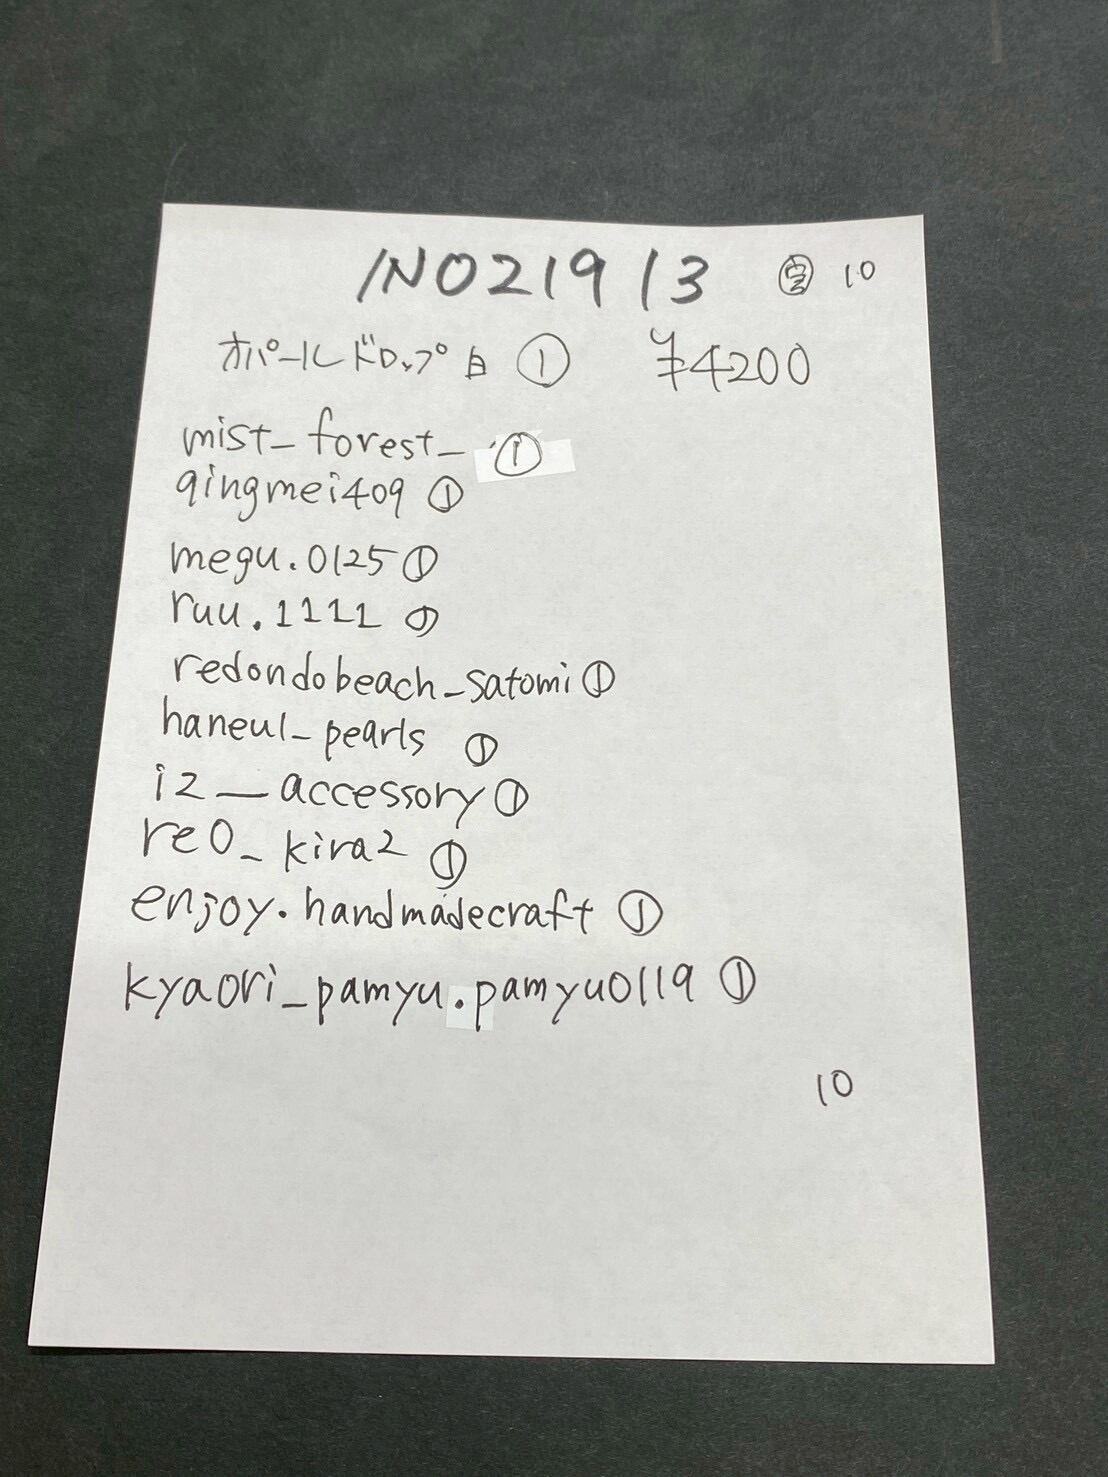 INO219 13 10
オパールドロップ 白 ① ¥4200
mist_forest_ ①
qingmei409 ①
megu.0125 ①
ruu.1111 ①
redondobeach_satomi ①
haneul_pearls ①
i2__accessory ①
re0_kira2 ①
enjoy.handmadecraft ①
kyaori_pamyu.pamyu0119 ①
10